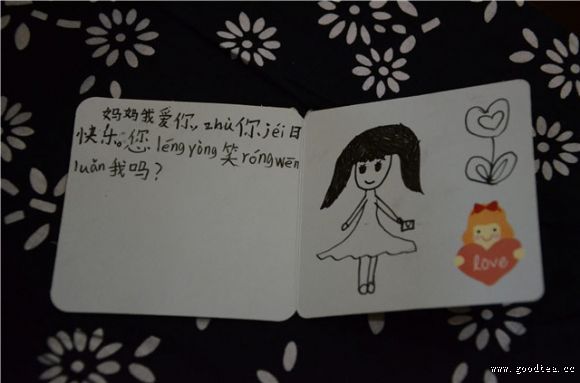 妈妈我爱你，zhù你jéi日
快乐。您léngyòng笑róngwēn
luǎn我吗？
love
www.goodtea.cc